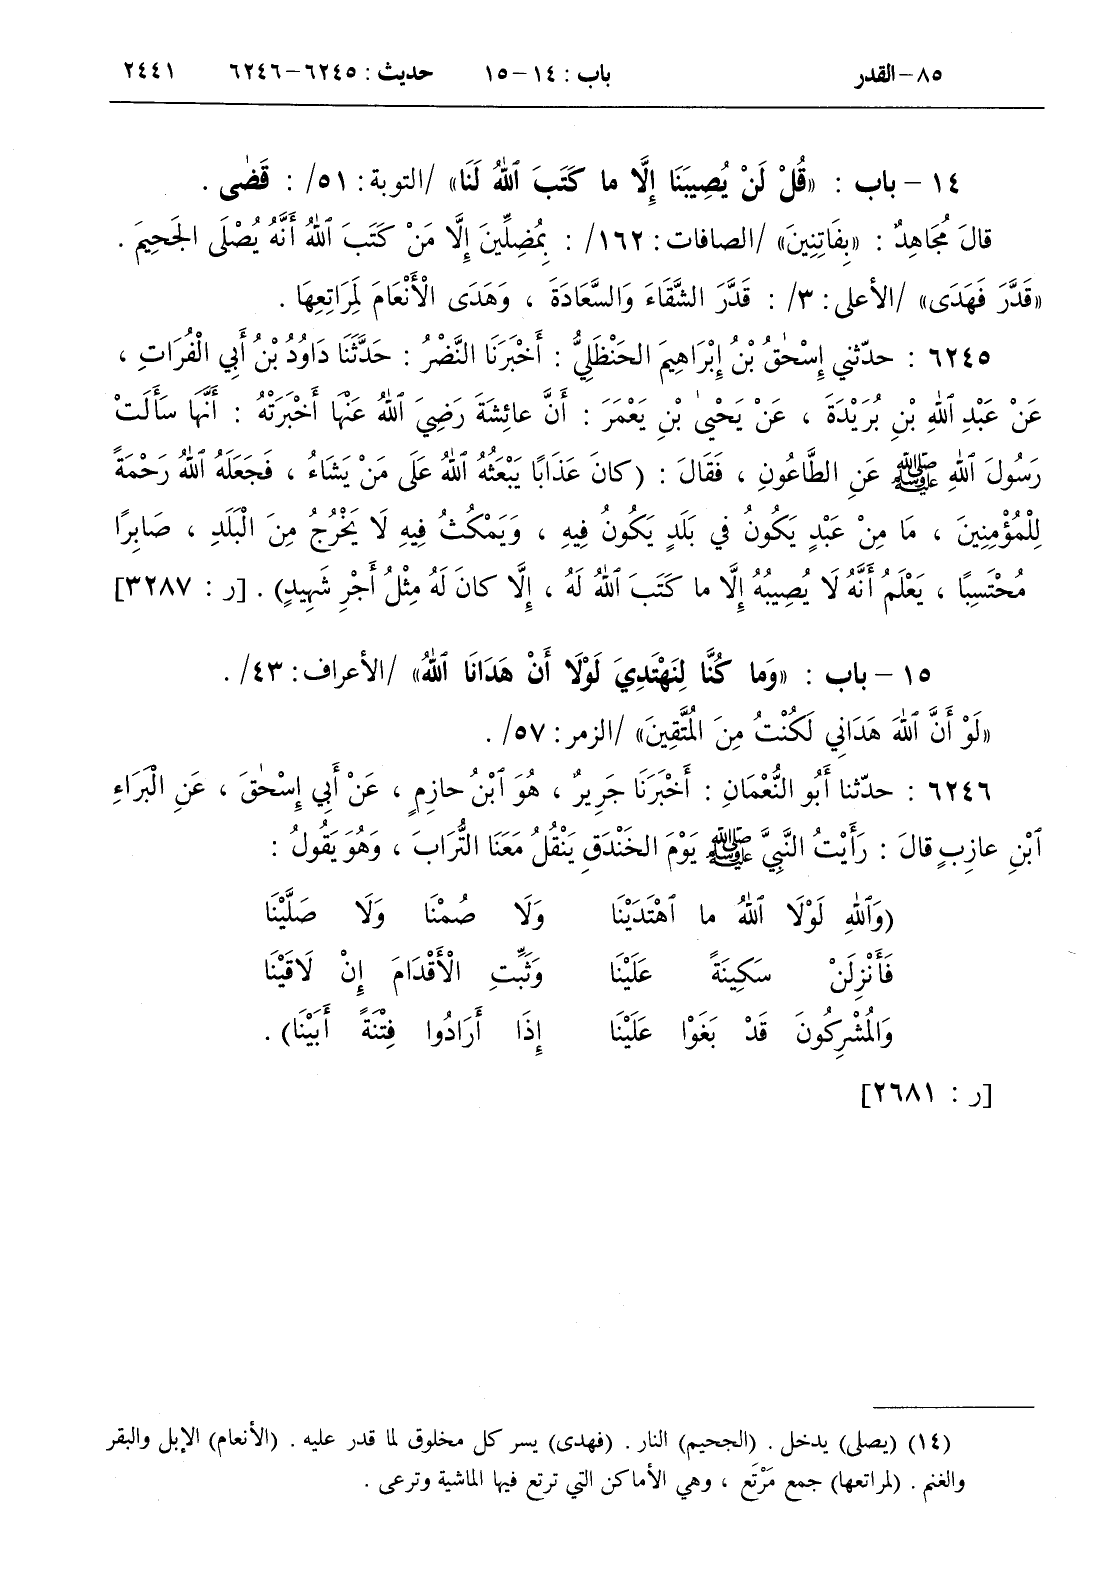 ٨٥-القدر باب : ١٤-١٥ حديث : ٦٢٤٥-٦٢٤٦ ٢٤٤١
١٤ - باب : «قُلْ لَنْ يُصِيبَنَا إِلَّا ما كَتَبَ ٱللهُ لَنَا» /التوبة: ٥١/ : قَضٰى .
قالَ مُجَاهِدٌ : «بِفَاتِنِينَ» /الصافات: ١٦٢/ : بِمُضِلِّينَ إِلَّا مَنْ كَتَبَ ٱللهُ أَنَّهُ يُصْلَى الجَحِيمَ .
«قَدَّرَ فَهَدَى» /الأعلى: ٣/ : قَدَّرَ الشَّقَاءَ وَالسَّعَادَةَ ، وَهَدَى الْأَنْعَامَ لِمَرَاتِعِهَا .
٦٢٤٥ : حدّثني إِسْحٰقُ بْنُ إِبْرَاهِيمَ الحَنْظَلِيُّ : أَخْبَرَنَا النَّضْرُ : حَدَّثَنَا دَاوُدُ بْنُ أَبِي الْفُرَاتِ ،
عَنْ عَبْدِ ٱللهِ بْنِ بُرَيْدَةَ ، عَنْ يَحْيىٰ بْنِ يَعْمَرَ : أَنَّ عائِشَةَ رَضِيَ ٱللهُ عَنْهَا أَخْبَرَتْهُ : أَنَّهَا سَأَلَتْ
رَسُولَ ٱللهِ ﷺ عَنِ الطَّاعُونِ ، فَقَالَ : (كانَ عَذَابًا يَبْعَثُهُ ٱللهُ عَلَى مَنْ يَشَاءُ ، فَجَعَلَهُ ٱللهُ رَحْمَةً
لِلْمُؤْمِنِينَ ، مَا مِنْ عَبْدٍ يَكُونُ في بَلَدٍ يَكُونُ فِيهِ ، وَيَمْكُثُ فِيهِ لَا يَخْرُجُ مِنَ الْبَلَدِ ، صَابِرًا
مُحْتَسِبًا ، يَعْلَمُ أَنَّهُ لَا يُصِيبُهُ إِلَّا ما كَتَبَ ٱللهُ لَهُ ، إِلَّا كانَ لَهُ مِثْلُ أَجْرِ شَهِيدٍ) . [ر : ٣٢٨٧]
١٥ - باب : «وَما كُنَّا لِنَهْتَدِيَ لَوْلَا أَنْ هَدَانَا ٱللهُ» /الأعراف: ٤٣/ .
«لَوْ أَنَّ ٱللهَ هَدَانِي لَكُنْتُ مِنَ المُتَّقِينَ» /الزمر: ٥٧/ .
٦٢٤٦ : حدّثنا أَبُو النُّعْمَانِ : أَخْبَرَنَا جَرِيرٌ ، هُوَ ٱبْنُ حازِمٍ ، عَنْ أَبِي إِسْحٰقَ ، عَنِ الْبَرَاءِ
ٱبْنِ عازِبٍ قالَ : رَأَيْتُ النَّبِيَّ ﷺ يَوْمَ الخَنْدَقِ يَنْقُلُ مَعَنَا التُّرَابَ ، وَهُوَ يَقُولُ :
(وَٱللهِ لَوْلَا ٱللهُ ما ٱهْتَدَيْنَا وَلَا صُمْنَا وَلَا صَلَّيْنَا
فَأَنْزِلَنْ سَكِينَةً عَلَيْنَا وَثَبِّتِ الْأَقْدَامَ إِنْ لَاقَيْنَا
وَالمُشْرِكُونَ قَدْ بَغَوْا عَلَيْنَا إِذَا أَرَادُوا فِتْنَةً أَبَيْنَا) .
[ر : ٢٦٨١]
(١٤) (يصلى) يدخل . (الجحيم) النار . (فهدى) يسر كل مخلوق لما قدر عليه . (الأنعام) الإبل والبقر
والغنم . (لمراتعها) جمع مَرْتَع ، وهي الأماكن التي ترتع فيها الماشية وترعى .